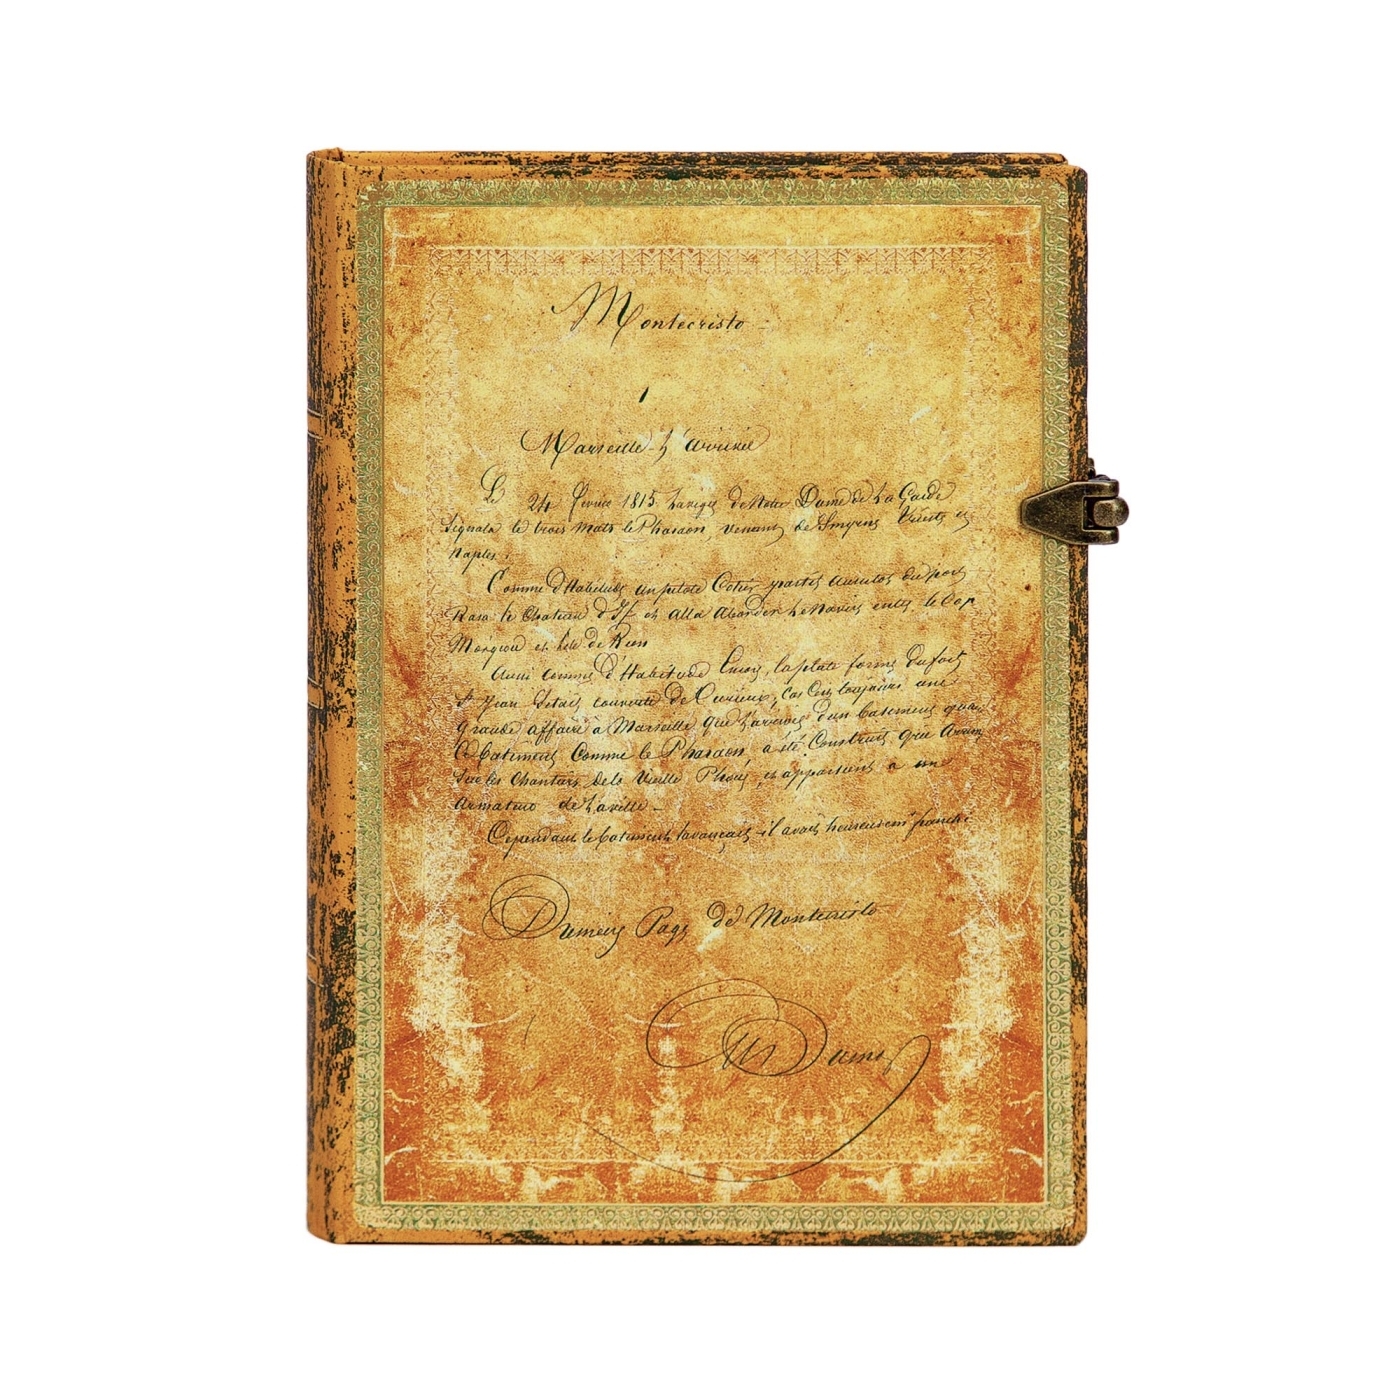 Montecristo –
1
Marseille – L'arrivée
Le 24 Février 1815 la vigie de Notre Dame de la Garde
signala le trois mats le Pharaon, venant de Smyrne Trieste et
Naples.
Comme d'Habitude un pilote Cotier partit aussitot du port
Rasa le Chateau d'If et alla aborder le Navire entre le Cap
Morgiou et l'ile de Rion
Aussi comme d'Habitude encore, la plate forme du fort
St Jean s'etait couverte de Curieux, car c'est toujours une
grande affaire à Marseille que l'arrivée d'un batiment quand
ce batiment Comme le Pharaon a été Construit gréé Arrimé
sur les chantiers de la Vieille Phocée, et appartient a un
armateur de la ville –
Cependant le batiment s'avançait – il avait heureusemt franchi
Dumas Page de Montecristo
Alx Dumas